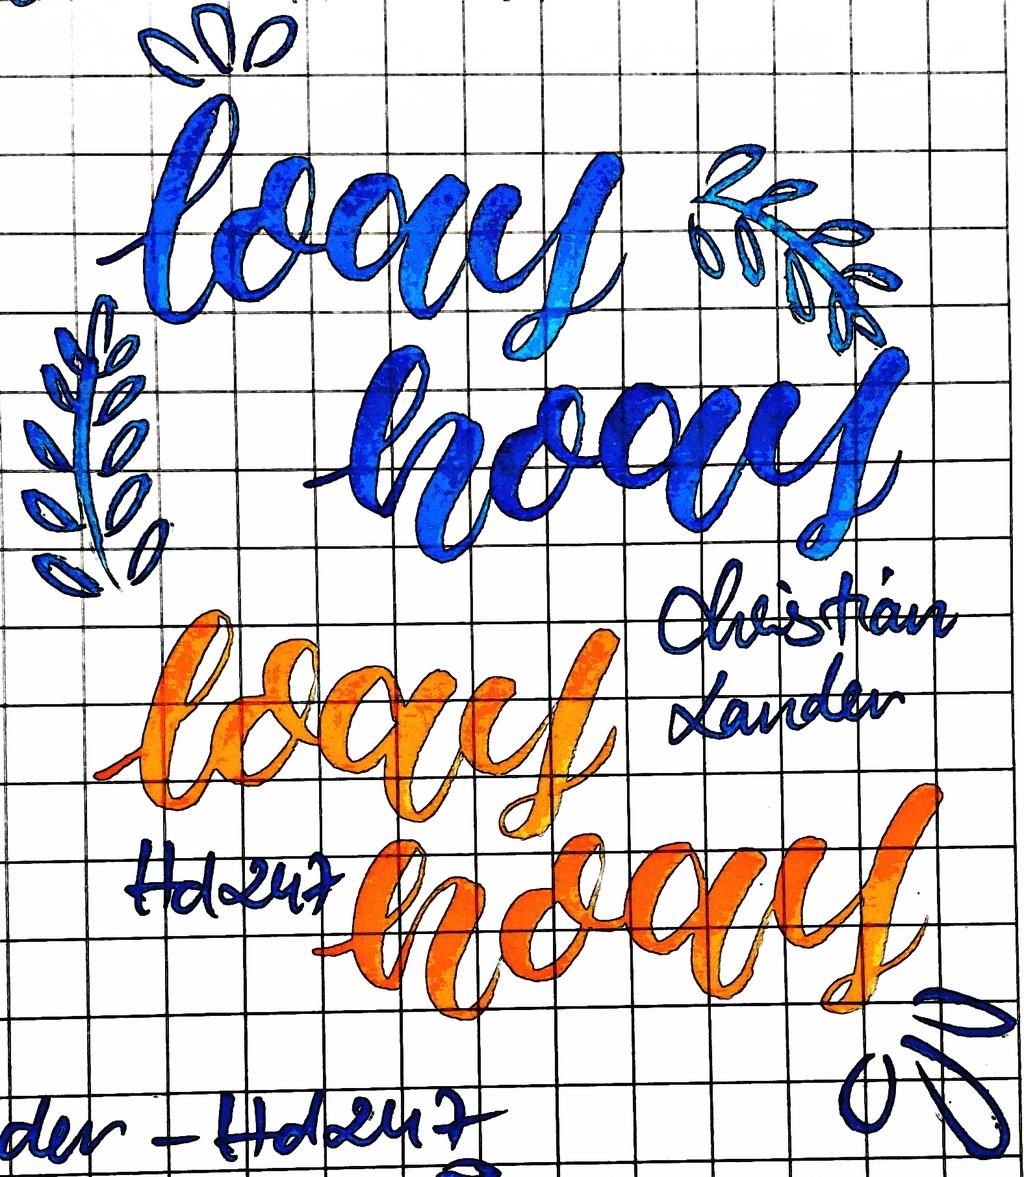 loay
hoay
Christian
Lander
loay
Hd247
hoay
der - Hd247